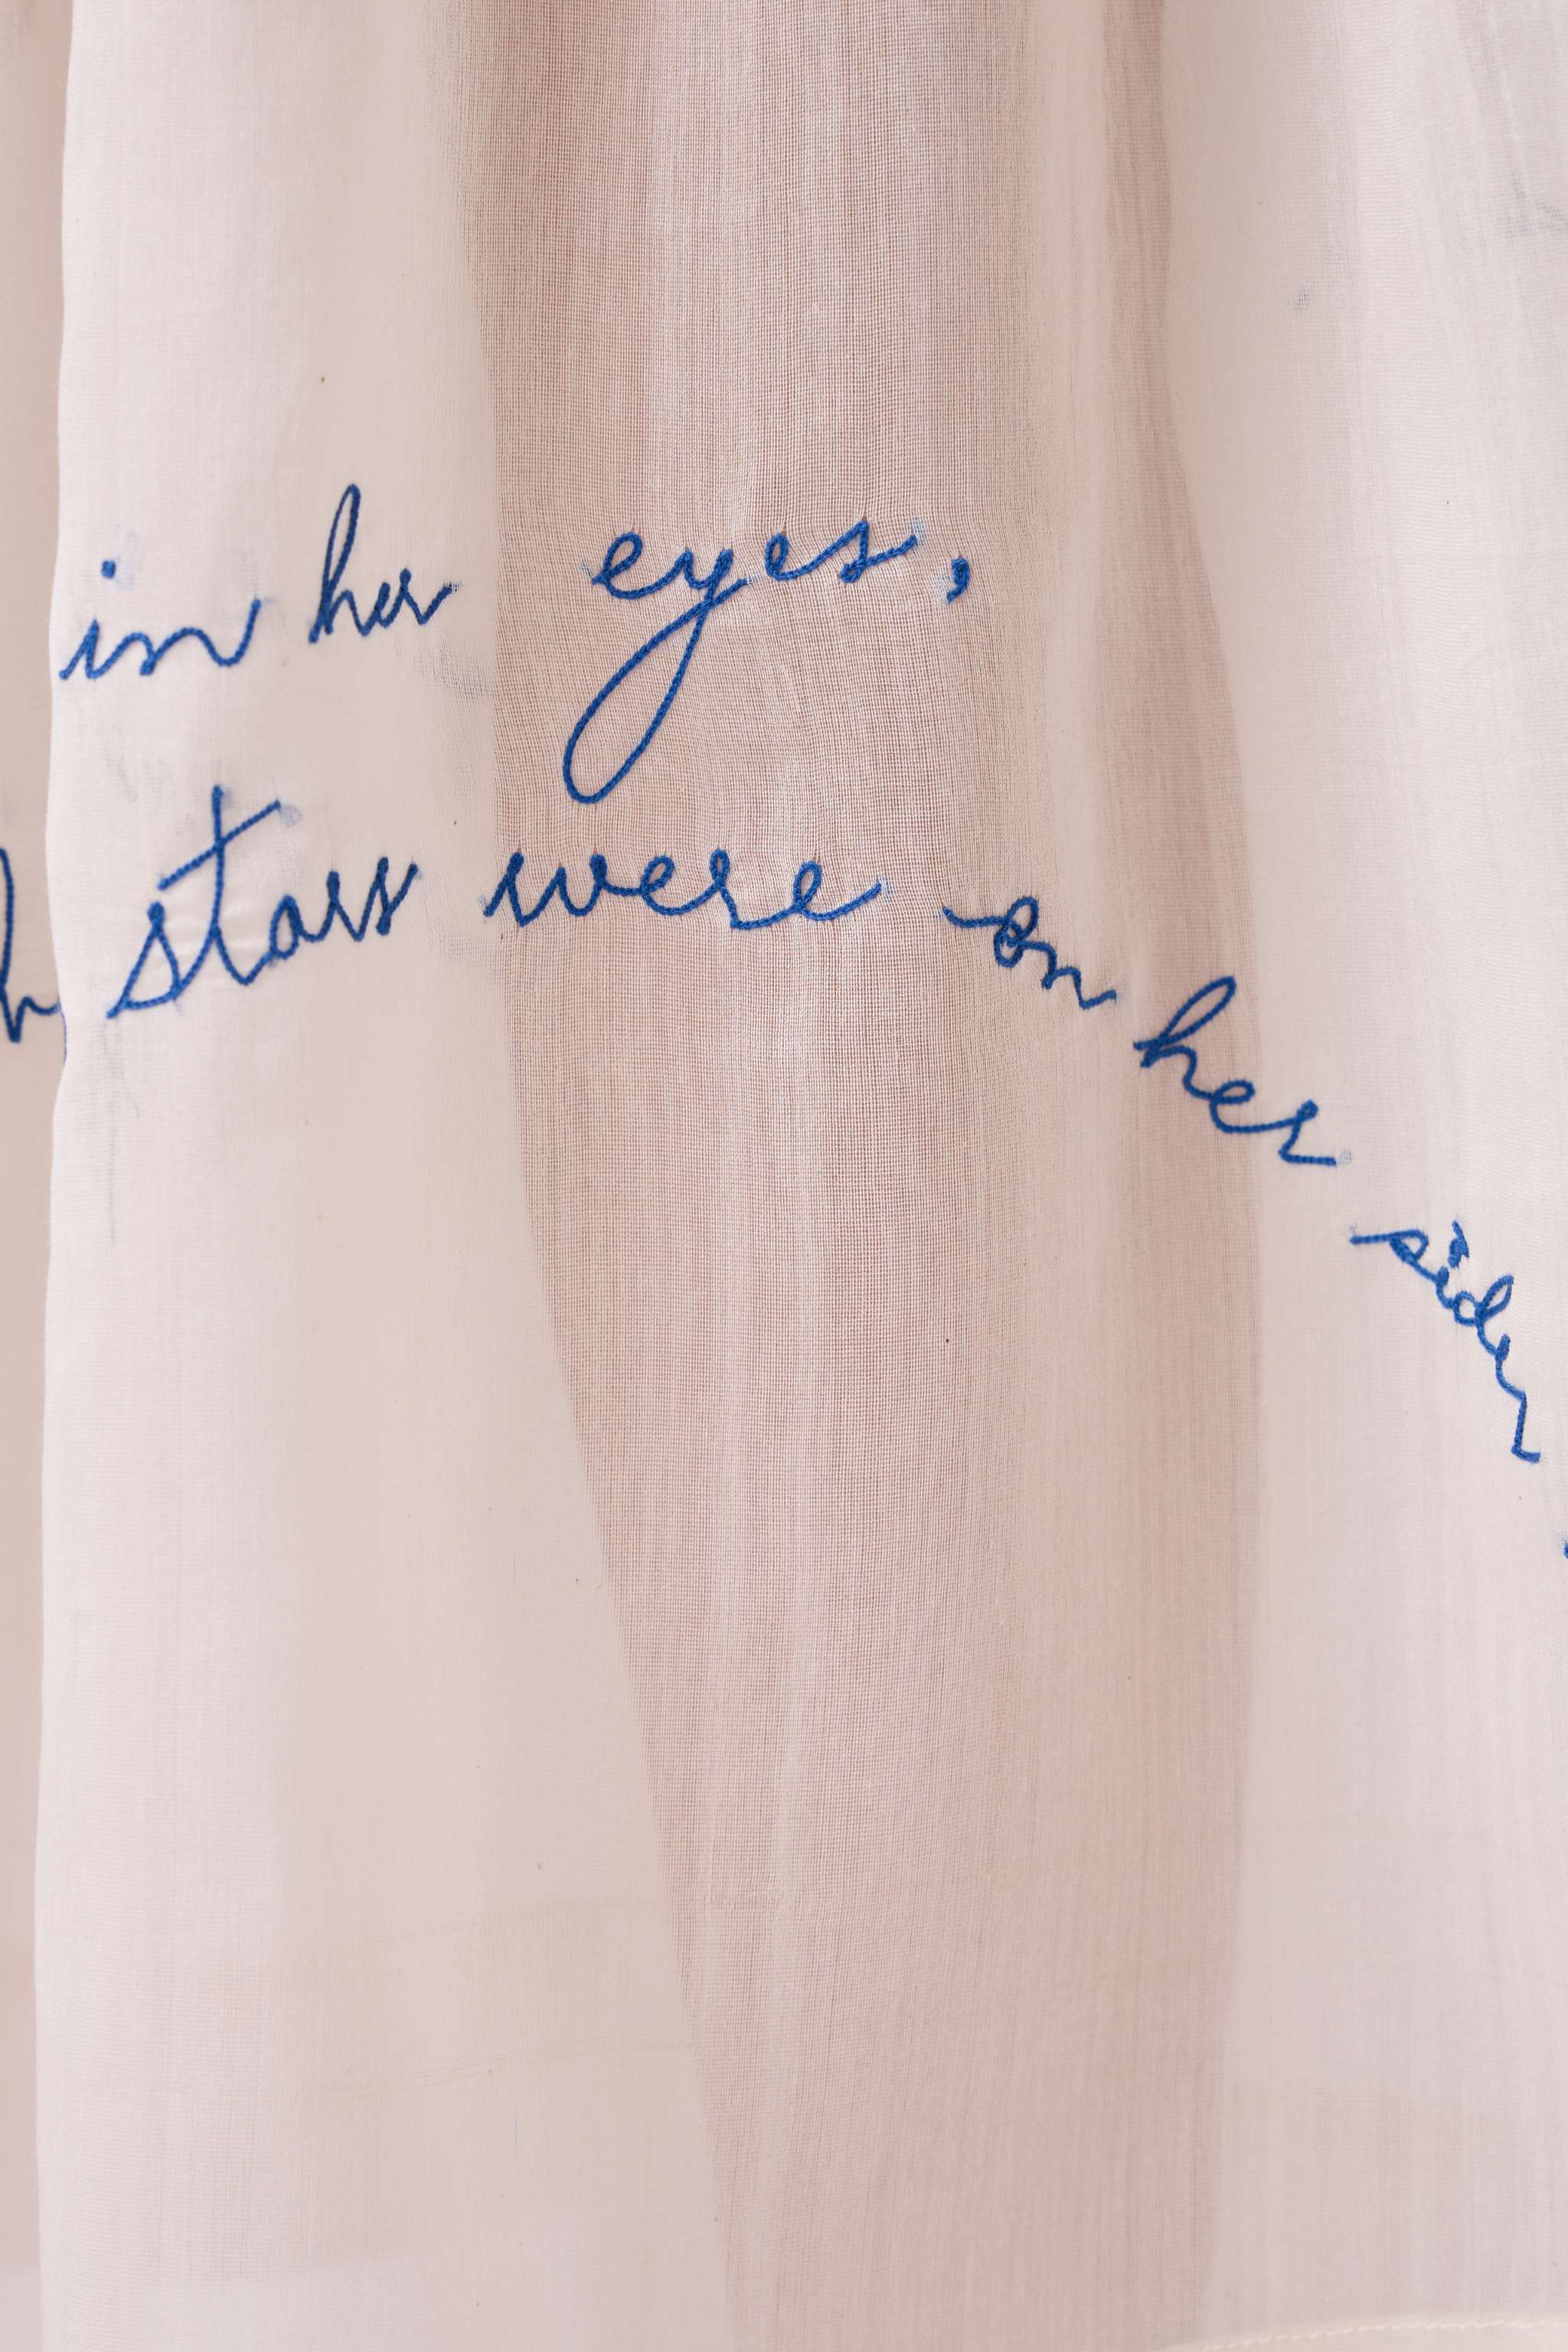 in her eyes,
stars were on her side